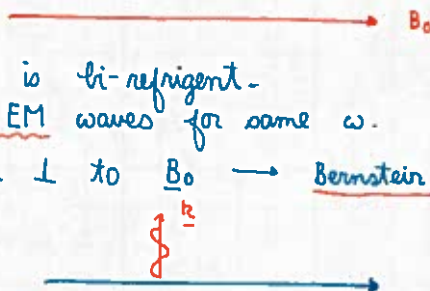 B₀
is bi-refrigent.
EM waves for same ω.
⊥ to B₀ → Bernstein
k